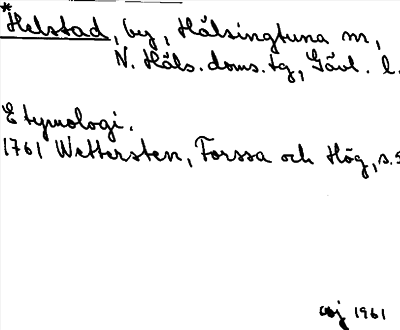 *Helstad, by, Hälsingtuna m,
N. Häls. doms. tg, Gävl. l.
Etymologi.
1761 Wettersten, Forssa och Hög, s.
1961